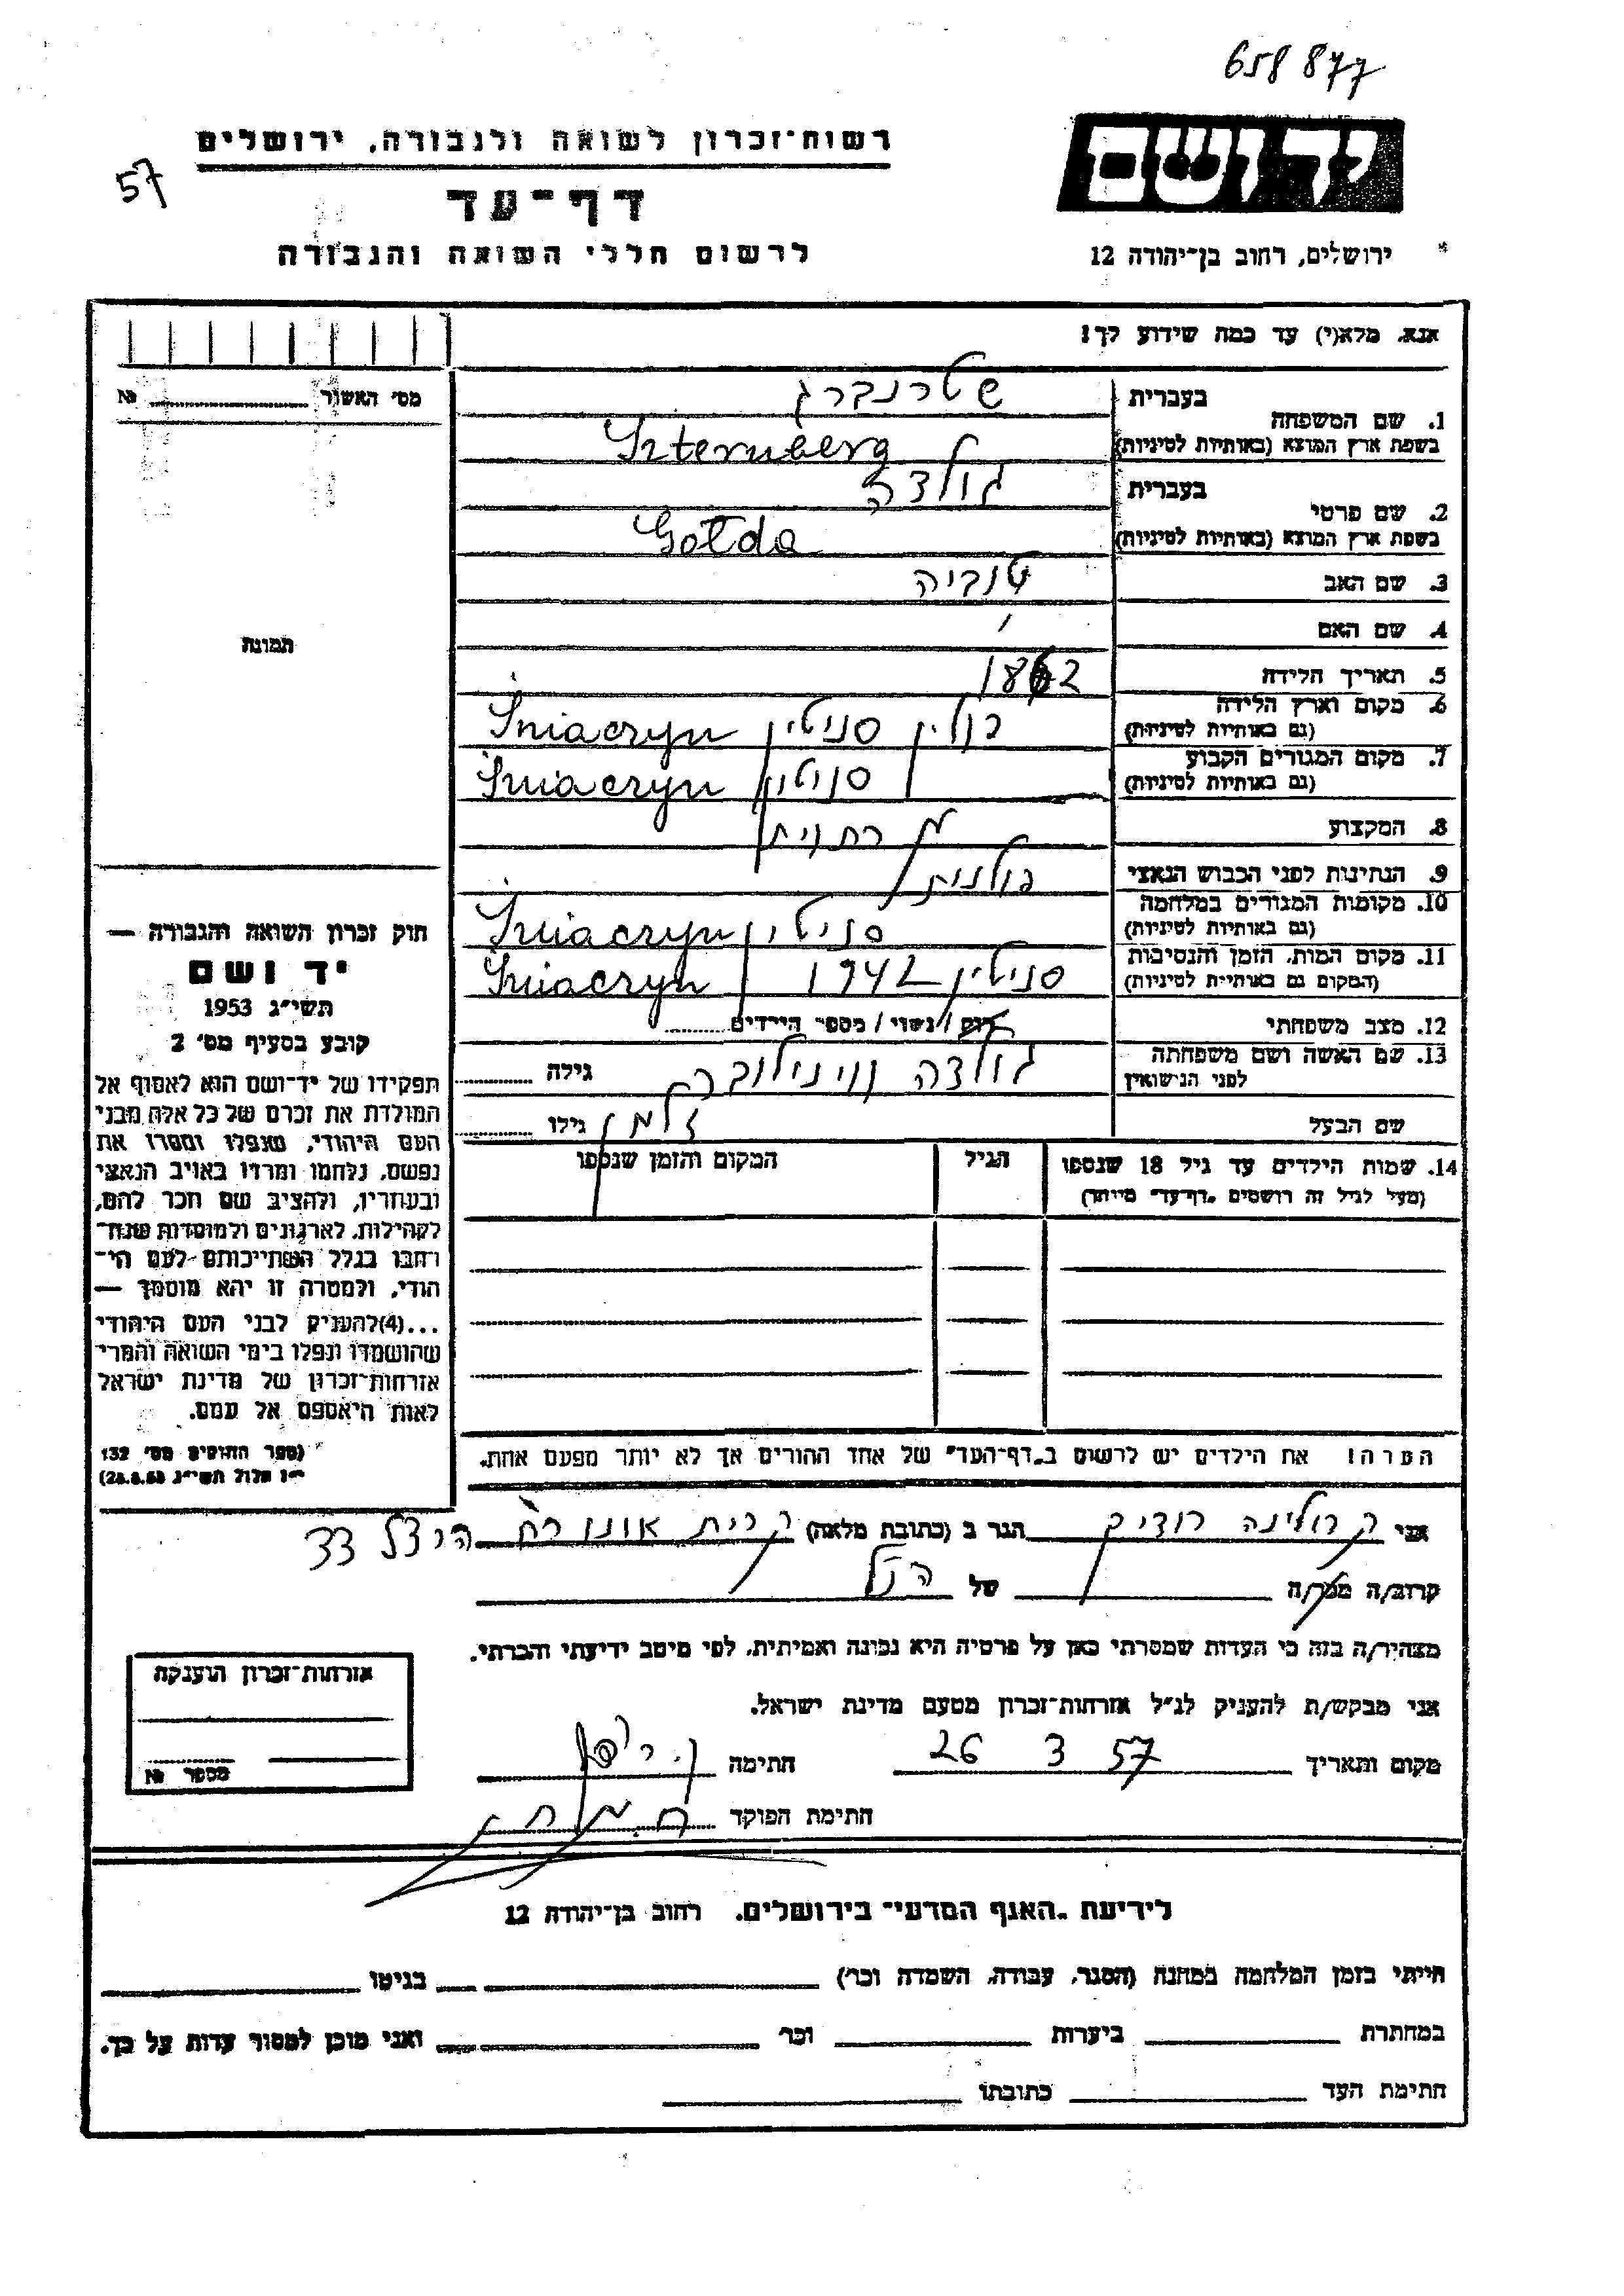 658 877
57
רשות־זכרון לשואה ולגבורה, ירושלים
דף־עד
לרשום חללי השואה והגבורה
יד ושם
ירושלים, רחוב בן־יהודה 12
אנא, מלא(י) עד כמה שידוע לך!
מס' האשור № 
1. שם המשפחה
בעברית שטרנברג
בשפת ארץ המוצא (באותיות לטיניות) Szternberg
2. שם פרטי
בעברית גולדה
בשפת ארץ המוצא (באותיות לטיניות) Gołda
3. שם האב טוביה
4. שם האם
5. תאריך הלידה 1862
6. מקום וארץ הלידה (גם באותיות לטיניות) פולין סניטין Śniaczyn
7. מקום המגורים הקבוע (גם באותיות לטיניות) סניטין Śniaczyn
8. המקצוע
9. הנתינות לפני הכבוש הנאצי פולנית
10. מקומות המגורים במלחמה (גם באותיות לטיניות) סניטין Śniaczyn
11. מקום המות, הזמן והנסיבות (המקום גם באותיות לטיניות) סניטין 1942 Śniaczyn
12. מצב משפחתי רוק / נשוי / מספר הילדים
13. שם האשה ושם משפחתה לפני הנישואין גולדה גילה
שם הבעל זלמן גילו
14. שמות הילדים עד גיל 18 שנספו
(מעל לגיל זה רושמים "דף־עד" מיוחד)
הגיל
המקום והזמן שנספו
הערה! את הילדים יש לרשום ב"דף־העד" של אחד ההורים אך לא יותר מפעם אחת.
תמונה
חוק זכרון השואה והגבורה —
יד ושם
תשי"ג 1953
קובע בסעיף מס' 2
תפקידו של יד־ושם הוא לאסוף אל
המולדת את זכרם של כל אלה מבני
העם היהודי, שנפלו ומסרו את
נפשם, נלחמו ומרדו באויב הנאצי
ובעוזריו, ולהציב שם וזכר להם,
לקהילות, לארגונים ולמוסדות שנח־
רבו בגלל השתייכותם לעם הי־
הודי, ולמטרה זו יהא מוסמך —
...(4)להעניק לבני העם היהודי
שהושמדו ונפלו בימי השואה והמרי
אזרחות־זכרון של מדינת ישראל
לאות היאספם אל עמם.
(ספר החוקים מס' 132
י"ז אלול תשי"ג 28.8.53)
אני קרולינה רודיק הגר ב (כתובת מלאה) קרית אונו רח הרצל 33
קרוב/ה מכר/ה של הנ"ל
מצהיר/ה בזה כי העדות שמסרתי כאן על פרטיה היא נכונה ואמיתית, לפי מיטב ידיעתי והכרתי.
אני מבקש/ת להעניק לנ"ל אזרחות־זכרון מטעם מדינת ישראל.
מקום ותאריך 26 3 57 חתימה
חתימת הפוקד
אזרחות־זכרון הוענקה
מספר №
לידיעת "האגף המדעי" בירושלים, רחוב בן־יהודה 12
הייתי בזמן המלחמה במחנה (הסגר, עבודה, השמדה וכו') בגיטו
במחתרת ביערות וכו' ואני מוכן למסור עדות על כך.
חתימת העד כתובתו